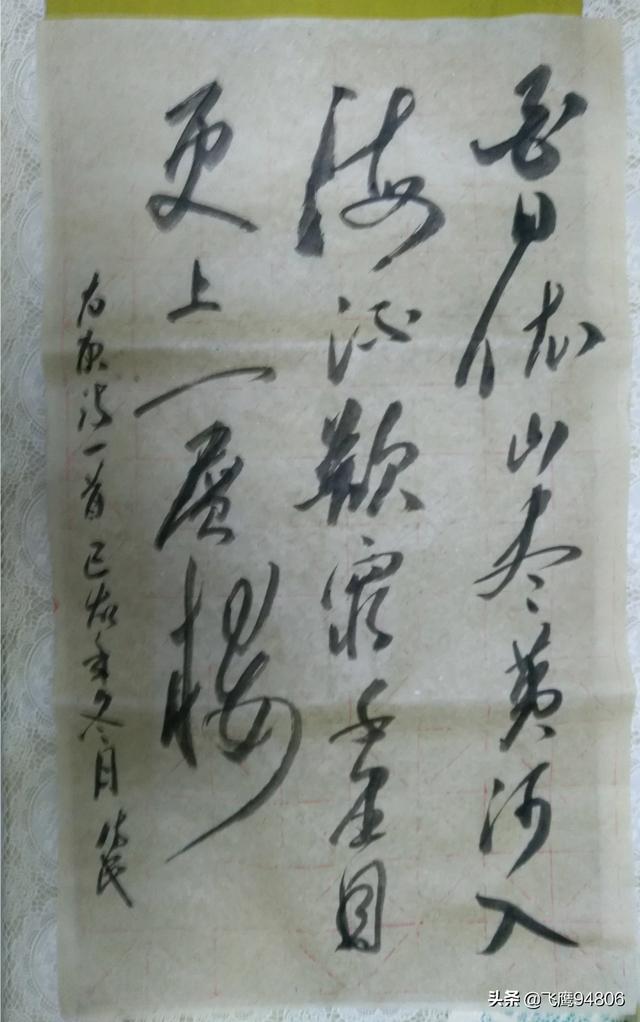 白日依山尽黄河入
海流欲穷千里目
更上一层楼
右唐诗一首己亥年冬月
头条@飞鹰94806